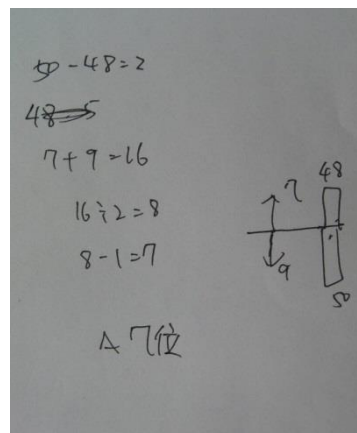 50-48=2
7+9=16
16÷2=8
8-1=7
A 7位
48
7
9
50